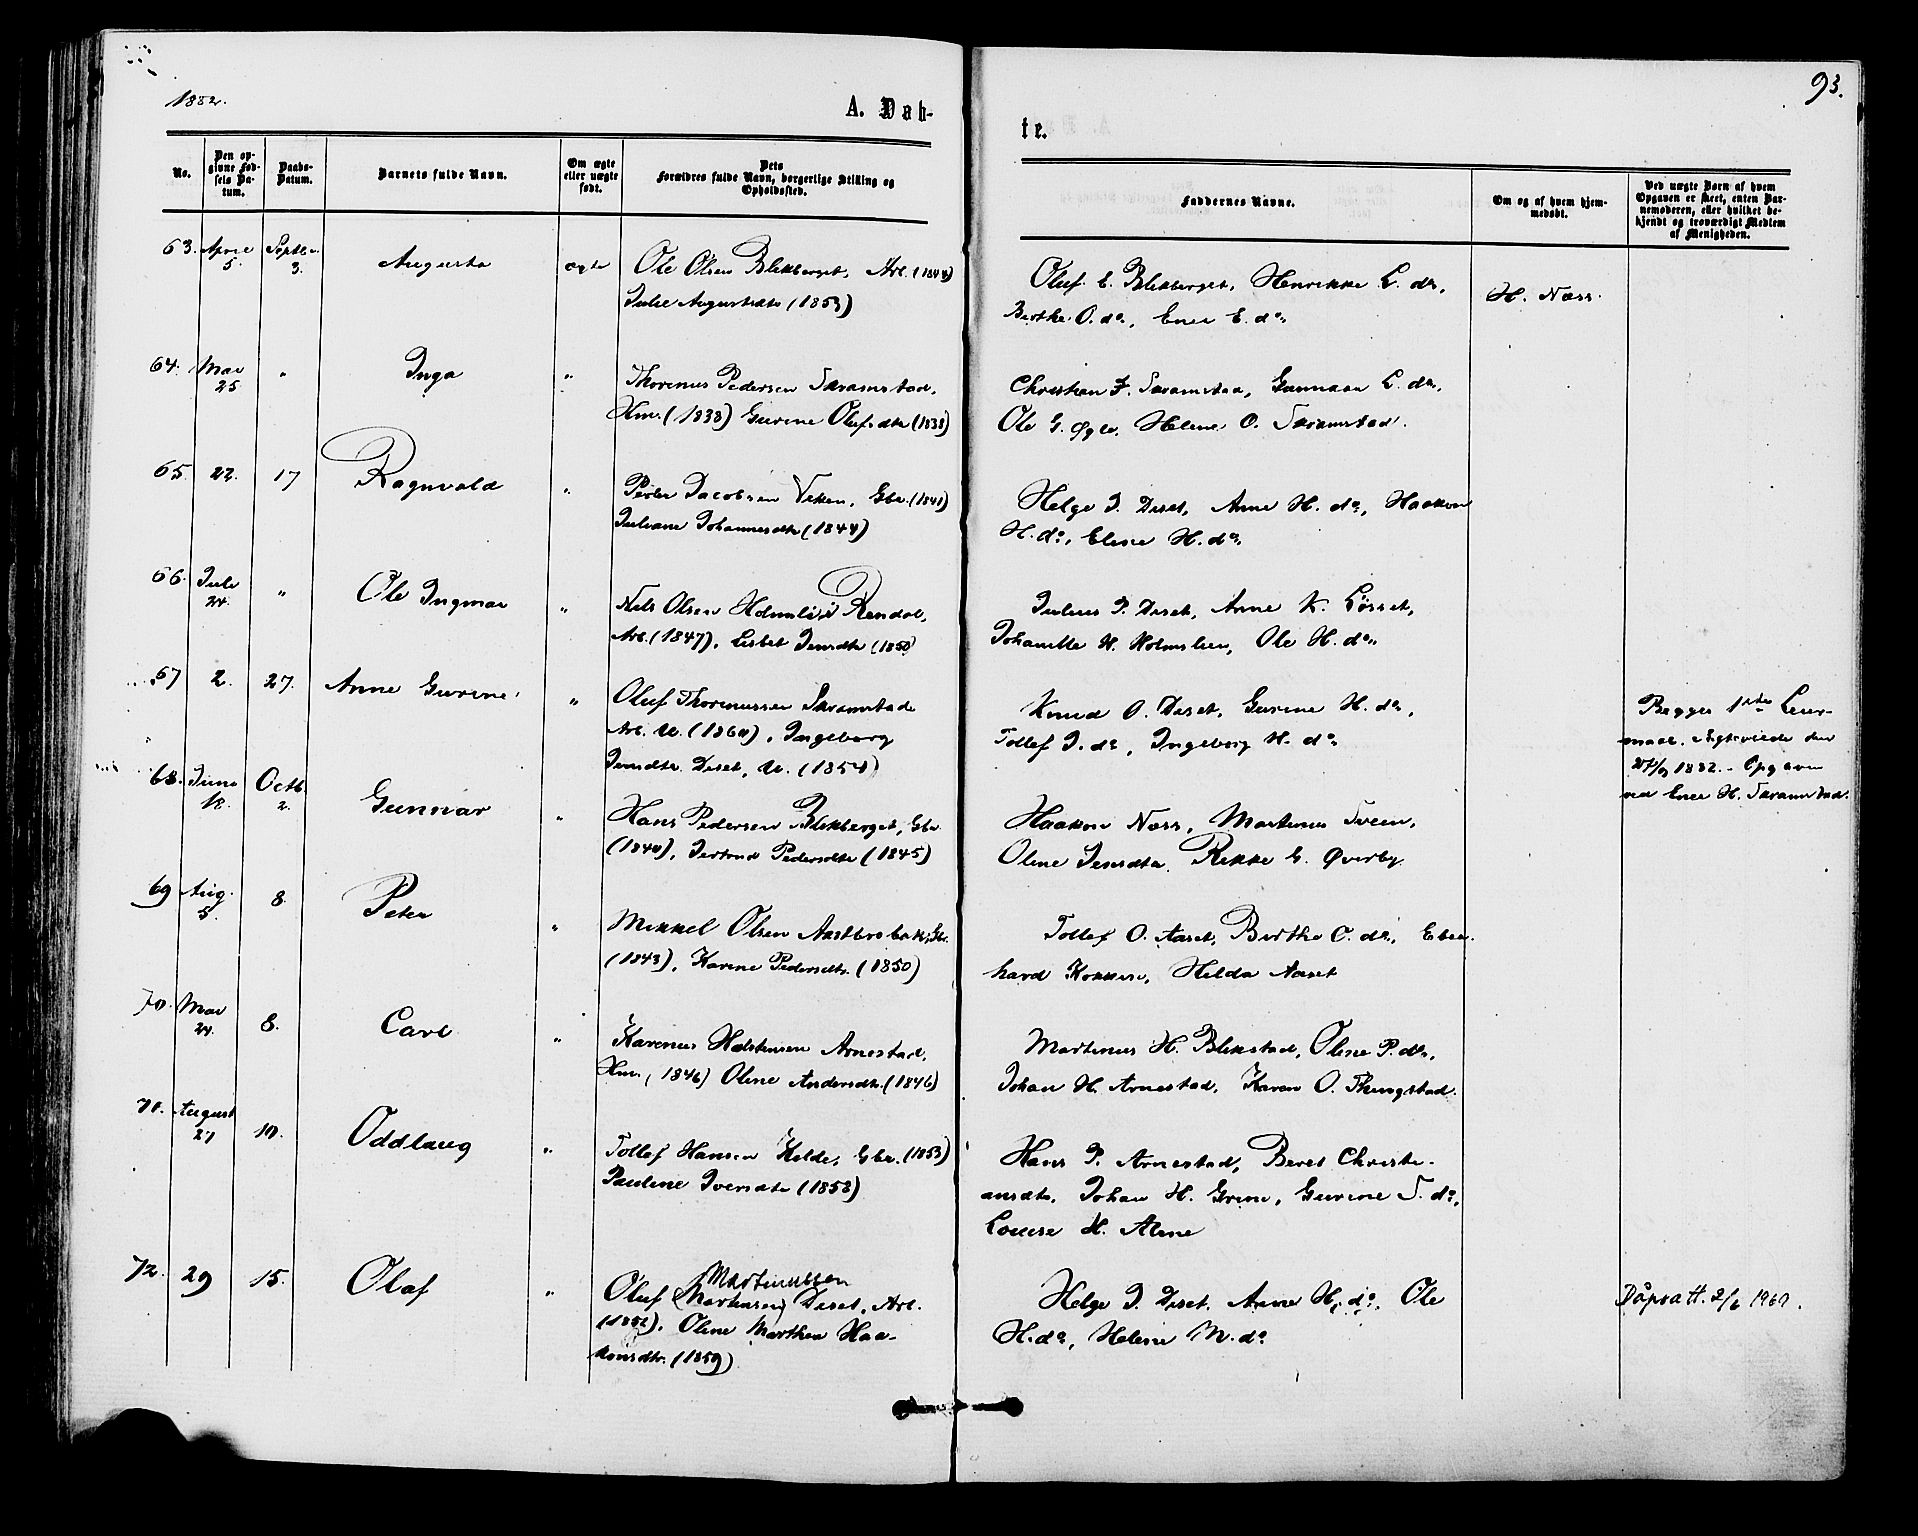 1882.
A. Døb-
te.
93.
No.
Den op-
givne Fød-
sels Da-
tum.
Daabs-
Datum.
Barnets fulde Navn.
Om ægte
eller uægte
født.
Dets
Forældres fulde Navn, borgerlige Stilling og
Opholdssted.
Faddernes Navne.
Om og af hvem hjem-
medøbt.
Ved uægte Børn af hvem
Opgaven er skeet, enten Bar-
nemoderen, eller hvilket be-
kjendt og troværdigt Medlem
af Menigheden.
63. April 5. Septbr. 3. Augusta ægte
Ole Olsen Blekberget, Arb. (1844)
Julie Augustsdtr (1853)
Oluf E. Blekberget, Henrikke L. do,
Berthe O. do,
H. Næss.
64. Mai 25 " Inga "
Thorinus Pedersen Skramstad,
Hm. (1838) Gurine Olufsdtr (1838)
Christian Skramstad, L. do,
Ole G. Øgle, Helene O. Skramstad.
65. 22. 17 Ragnvald "
Peder Jacobsen Viken, Gbr. (1841)
Juliane Johannesdtr (1844)
Helge J. Diset, Anne H. do, Haakon
H. do, Eline H. do,
66. Juli 24. " Ole Ingmar "
Nils Olsen Holmlien Rendal,
Arb. (1847), Lisbet Jensdtr (1850)
Julius P. Diset, Anne K. Løsset,
Johanette H. Holmslien, Ole H. do,
67 2. 27. Anne Gurine "
Oluf Thorinussen Skramstad
Arb. U. (1860), Ingeborg
Jensdtr. Diset, U. (1854)
Knud O. Diset, Gurine H. do,
Tollef J. do, Ingeborg H. do
Begges 1ste Leier-
maal. Ægteviede den
1882. - Opgaven
ved H. Skramstad.
68. Juni 18. Octb. 2. Gunnar "
Hans Pedersen Blekberget, Gbr.
(1840), Jertrud Pedersdtr (1845)
Haakon Næss, Martinus Sveen,
Oline Jensdtr, Rikke G. Øverby
69 Aug. 5. 8. Peter "
Mikkel Olsen Aastbrobak, Gbr.
(1843), Karine Pedersdtr. (1850)
Tollef O. Aaset, Berthe O. do, Eber-
hard Hilda Aaset
70. Mai 24. 8. Carl "
Karenus Halstensen Arnestad,
Hm. (1846) Oline Andersdtr. (1846)
Martinus H. Blikstad, Oline P. do,
Johan H. Arnestad, Karen O. Thingstad.
71. August 27 10. Oddlaug "
Tollef Hansen Kilde, Gbr. (1853)
Pauline Iversdtr (1858)
Hans P. Arnestad, Beret Christi-
ansdtr, Johan H. Grini, Gurine T. do,
Louise H. Alme
72. 29 15. Olaf "
Martinussen
Oluf (Martinsen) Diset, Arb.
(1852), Oline Marthea Haa-
konsdtr. (1859)
Helge J. Diset, Anne H. do, Ole
H. do, Helene M. do
Dåpsatt. 2/6 1960.